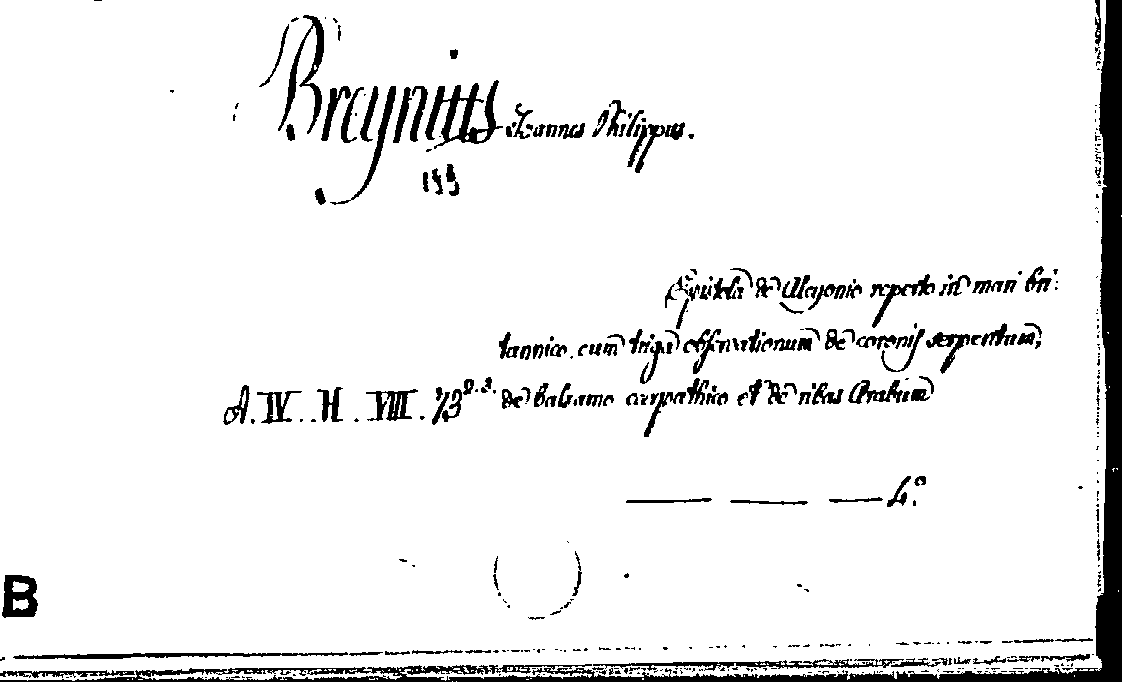 Breynius Joannes Philippus.
Epistola de Alcyonio reperto in mari bri:
tannico, cum triga observationum de coronis serpentum,
A. IV. H. VIII. 73 2.3. de balsamo carpathico et de ribas Arabum
— — — 4.º
B